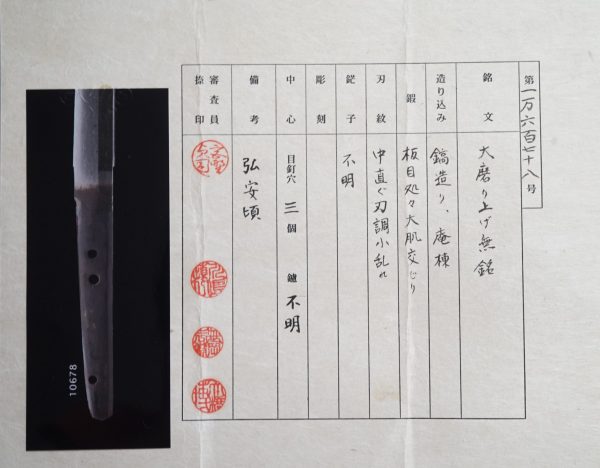 第一万六百七十八号
銘文 大磨り上げ無銘
造り込み 鎬造り、庵棟
鍜 板目処々大肌交じり
刃紋 中直ぐ刃調小乱れ
鋩子 不明
彫刻
中心 目釘穴 三個 鑢 不明
備考 弘安頃
審査員捺印
10678